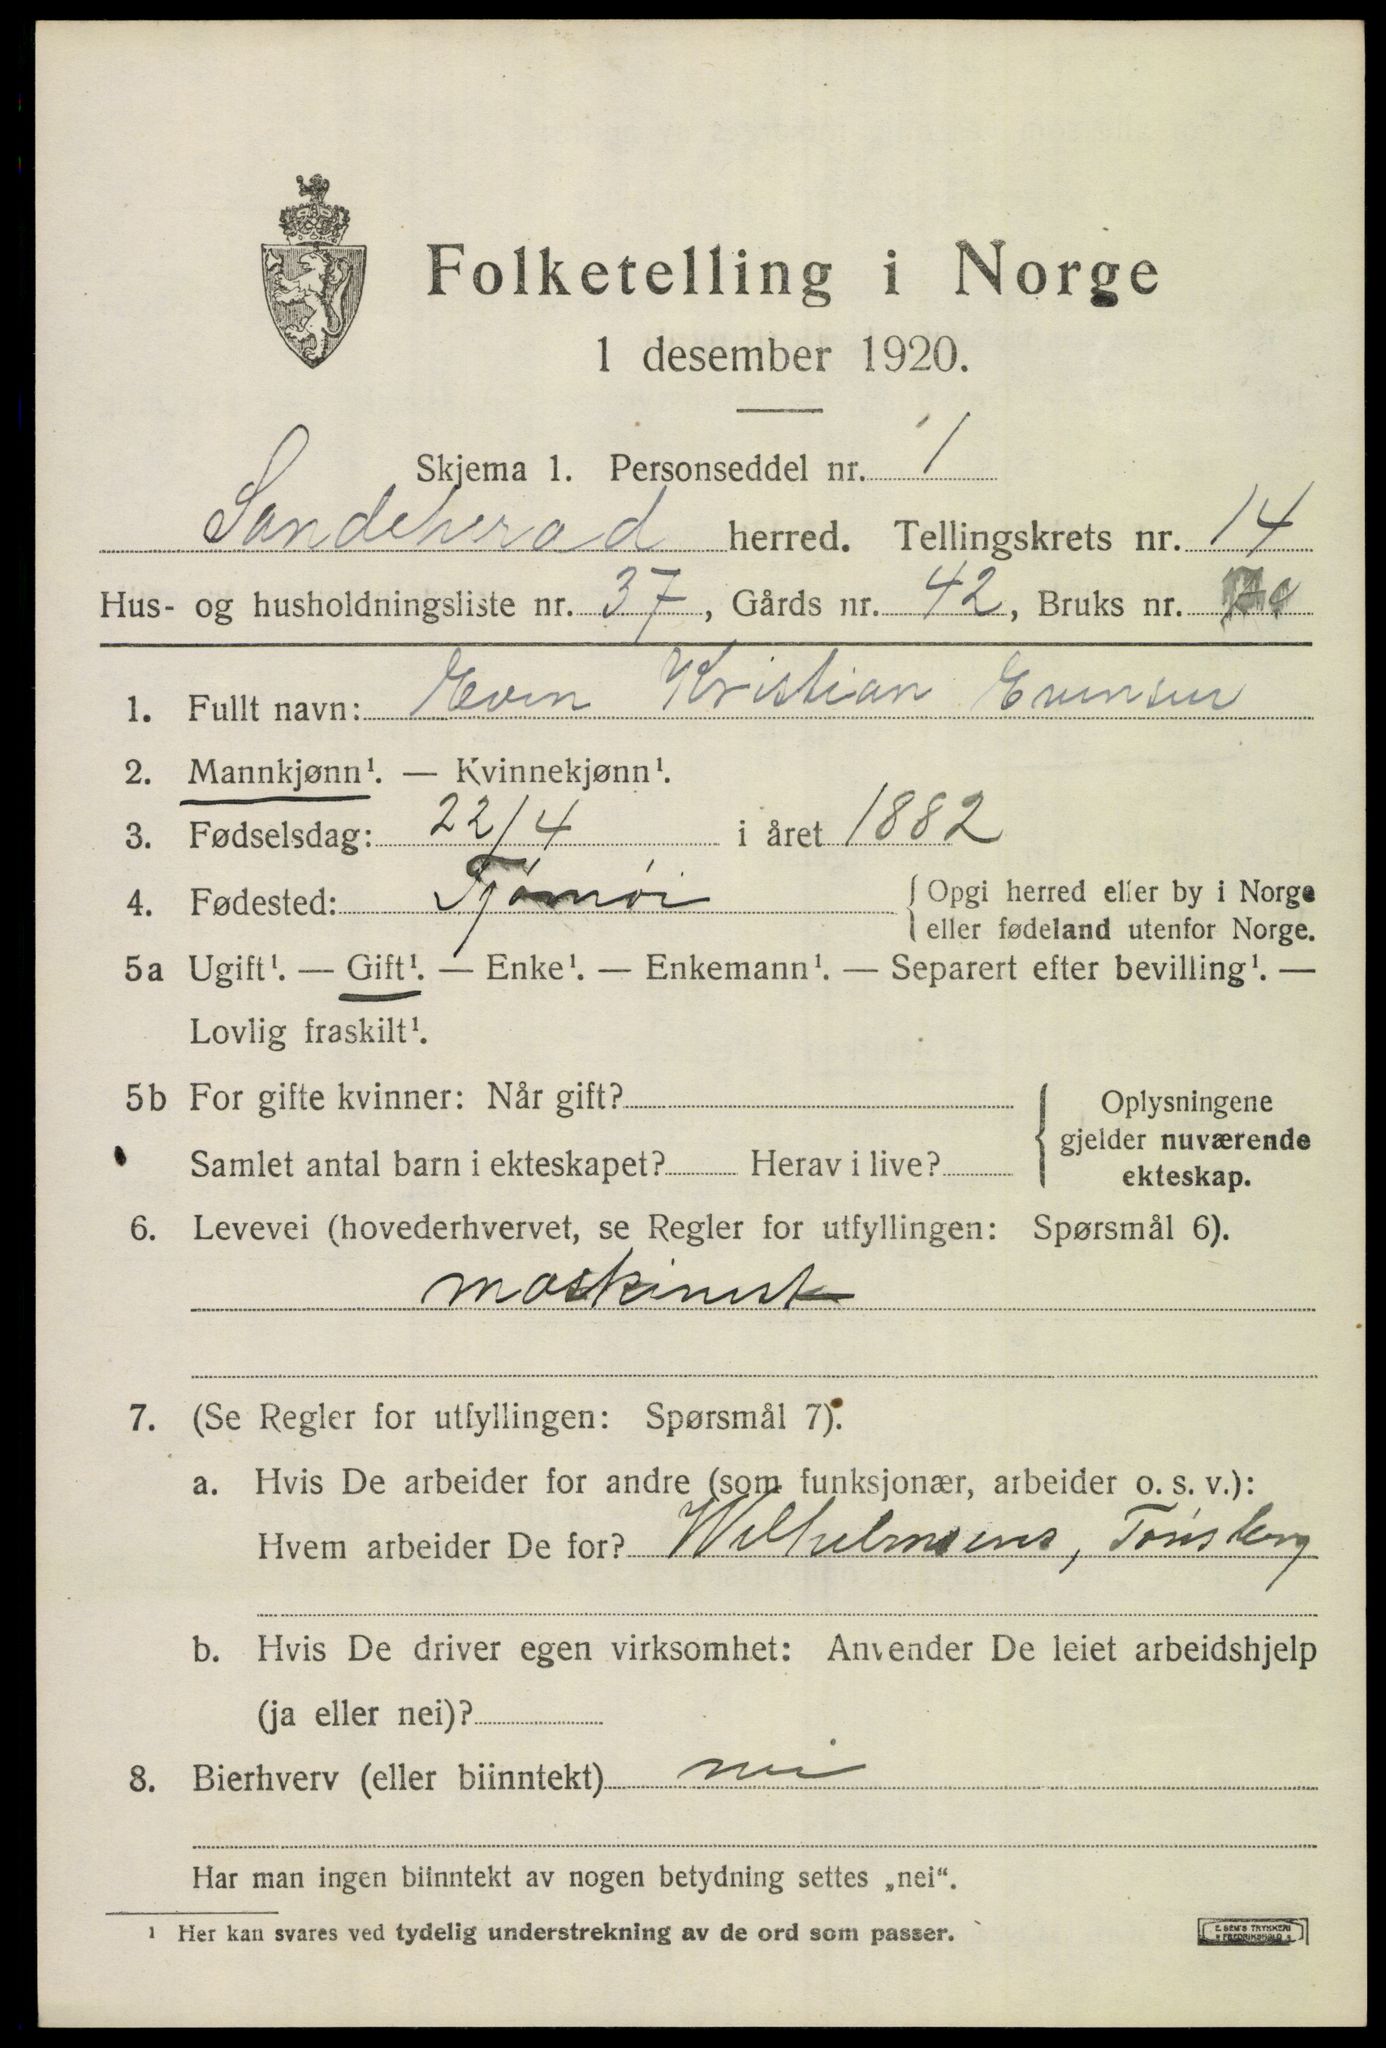 Folketelling i Norge
1 desember 1920.
Skjema 1. Personseddel nr. 1
Sandeherad herred. Tellingskrets nr. 14
Hus- og husholdningsliste nr. 37, Gårds nr. 42, Bruks nr.
1. Fullt navn: Even Kristian Evensen
2. Mannkjønn¹. — Kvinnekjønn¹.
3. Fødselsdag: 22/4 i året 1882
4. Fødested: Tjømøi { Opgi herred eller by i Norge
eller fødeland utenfor Norge.
5a Ugift¹. — Gift¹. — Enke¹. — Enkemann¹. — Separert efter bevilling¹. —
Lovlig fraskilt¹.
5b For gifte kvinner: Når gift?
Samlet antal barn i ekteskapet? Herav i live?
{ Oplysningene
gjelder nuværende
ekteskap.
6. Levevei (hovederhvervet, se Regler for utfyllingen: Spørsmål 6).
maskinist
7. (Se Regler for utfyllingen: Spørsmål 7).
a. Hvis De arbeider for andre (som funksjonær, arbeider o. s. v.):
Hvem arbeider De for? Wilhelmsens, Tønsberg
b. Hvis De driver egen virksomhet: Anvender De leiet arbeidshjelp
(ja eller nei)?
8. Bierhverv (eller biinntekt) nei
Har man ingen biinntekt av nogen betydning settes „nei“.
¹ Her kan svares ved tydelig understrekning av de ord som passer.
E. SEM'S TRYKKERI
FREDRIKSHALD